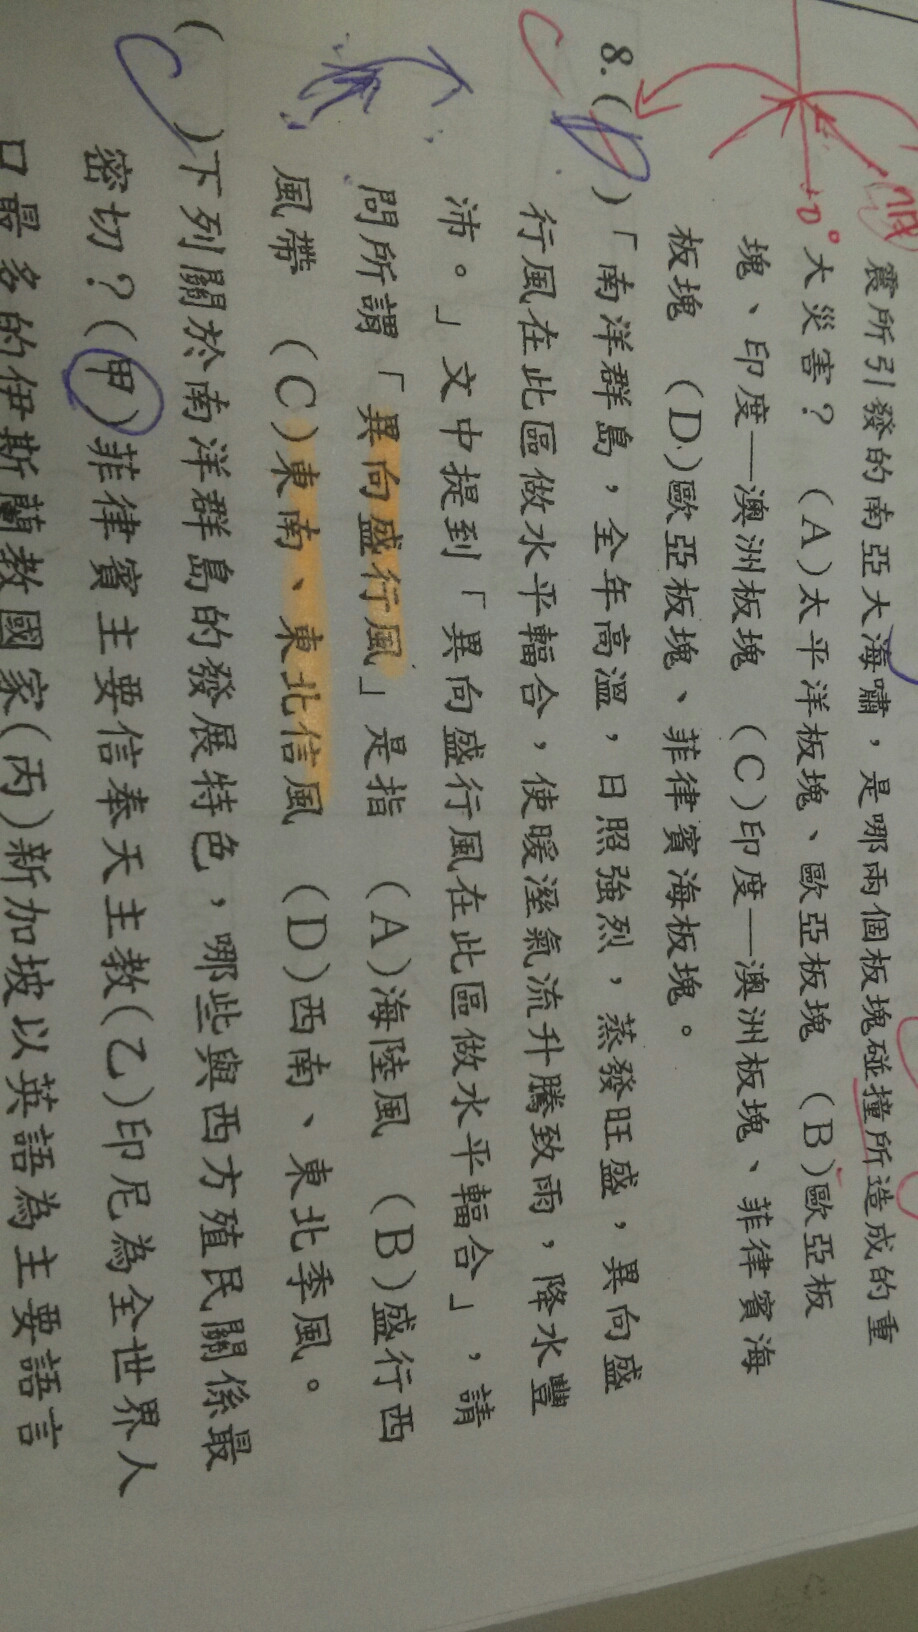 震所引發的南亞大海嘯,是哪兩個板塊碰撞所造成的重
大災害? (A)太平洋板塊、歐亞板塊 (B)歐亞板
塊、印度—澳洲板塊 (C)印度—澳洲板塊、菲律賓海
板塊 (D)歐亞板塊、菲律賓海板塊。
8.( D )「南洋群島,全年高溫,日照強烈,蒸發旺盛,異向盛
行風在此區做水平輻合,使暖溼氣流升騰致雨,降水豐
沛。」文中提到「異向盛行風在此區做水平輻合」,請
問所謂「異向盛行風」是指 (A)海陸風 (B)盛行西
風帶 (C)東南、東北信風 (D)西南、東北季風。
( )下列關於南洋群島的發展特色,哪些與西方殖民關係最
密切?(甲)菲律賓主要信奉天主教(乙)印尼為全世界人
口最多的伊斯蘭教國家(丙)新加坡以英語為主要語言